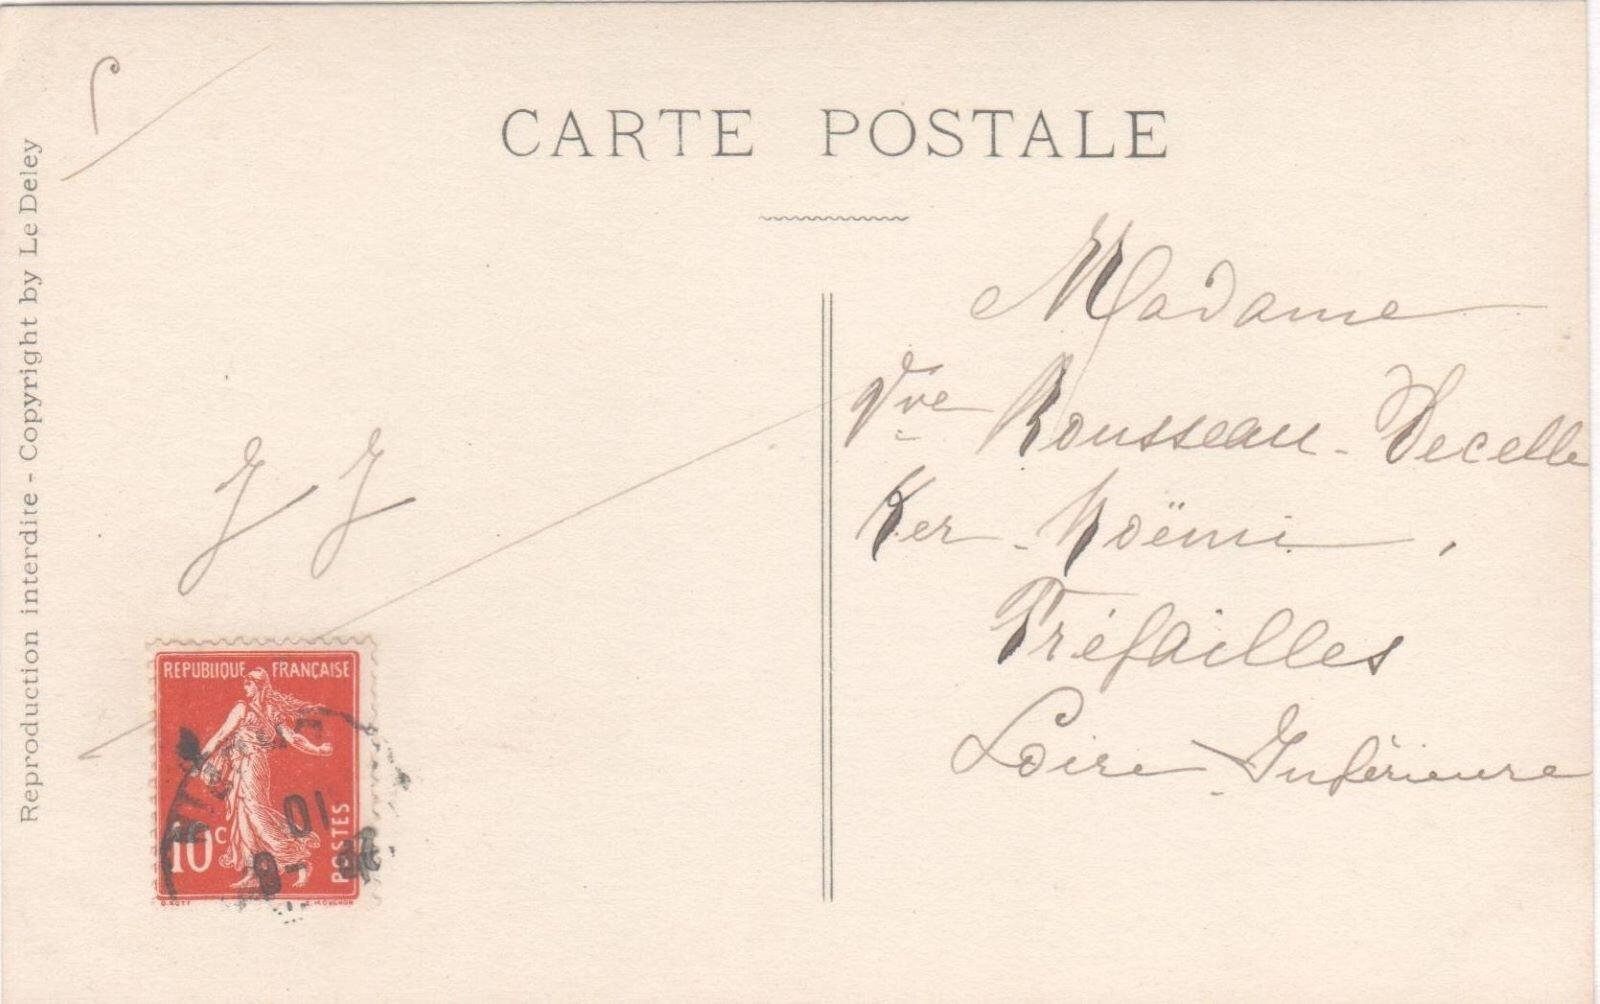 CARTE POSTALE
Reproduction interdite - Copyright by Le Deley
J J
Madame
Vve Rousseau-Decelle
Ker-Noëmi,
Préfailles
Loire-Inférieure
REPUBLIQUE FRANÇAISE
10c
POSTES
10